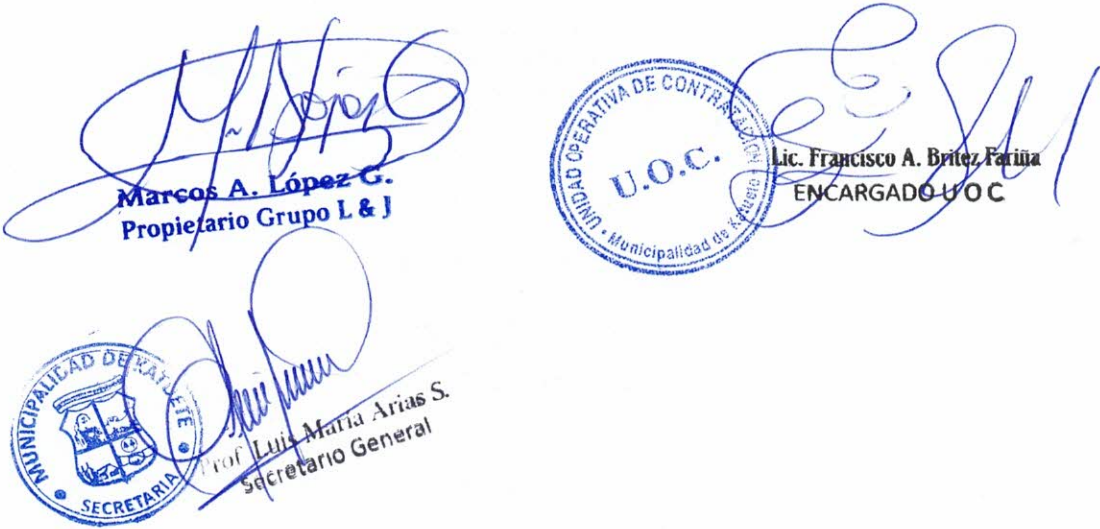 Marcos A. López G.
Propietario Grupo L & J
UNIDAD OPERATIVA DE CONTRATACION
U.O.C.
Municipalidad de Katuete
Lic. Francisco A. Britez Fariña
ENCARGADO U O C
MUNICIPALIDAD DE KATUETE
SECRETARIA
Prof. Luis Maria Arias S.
Secretario General